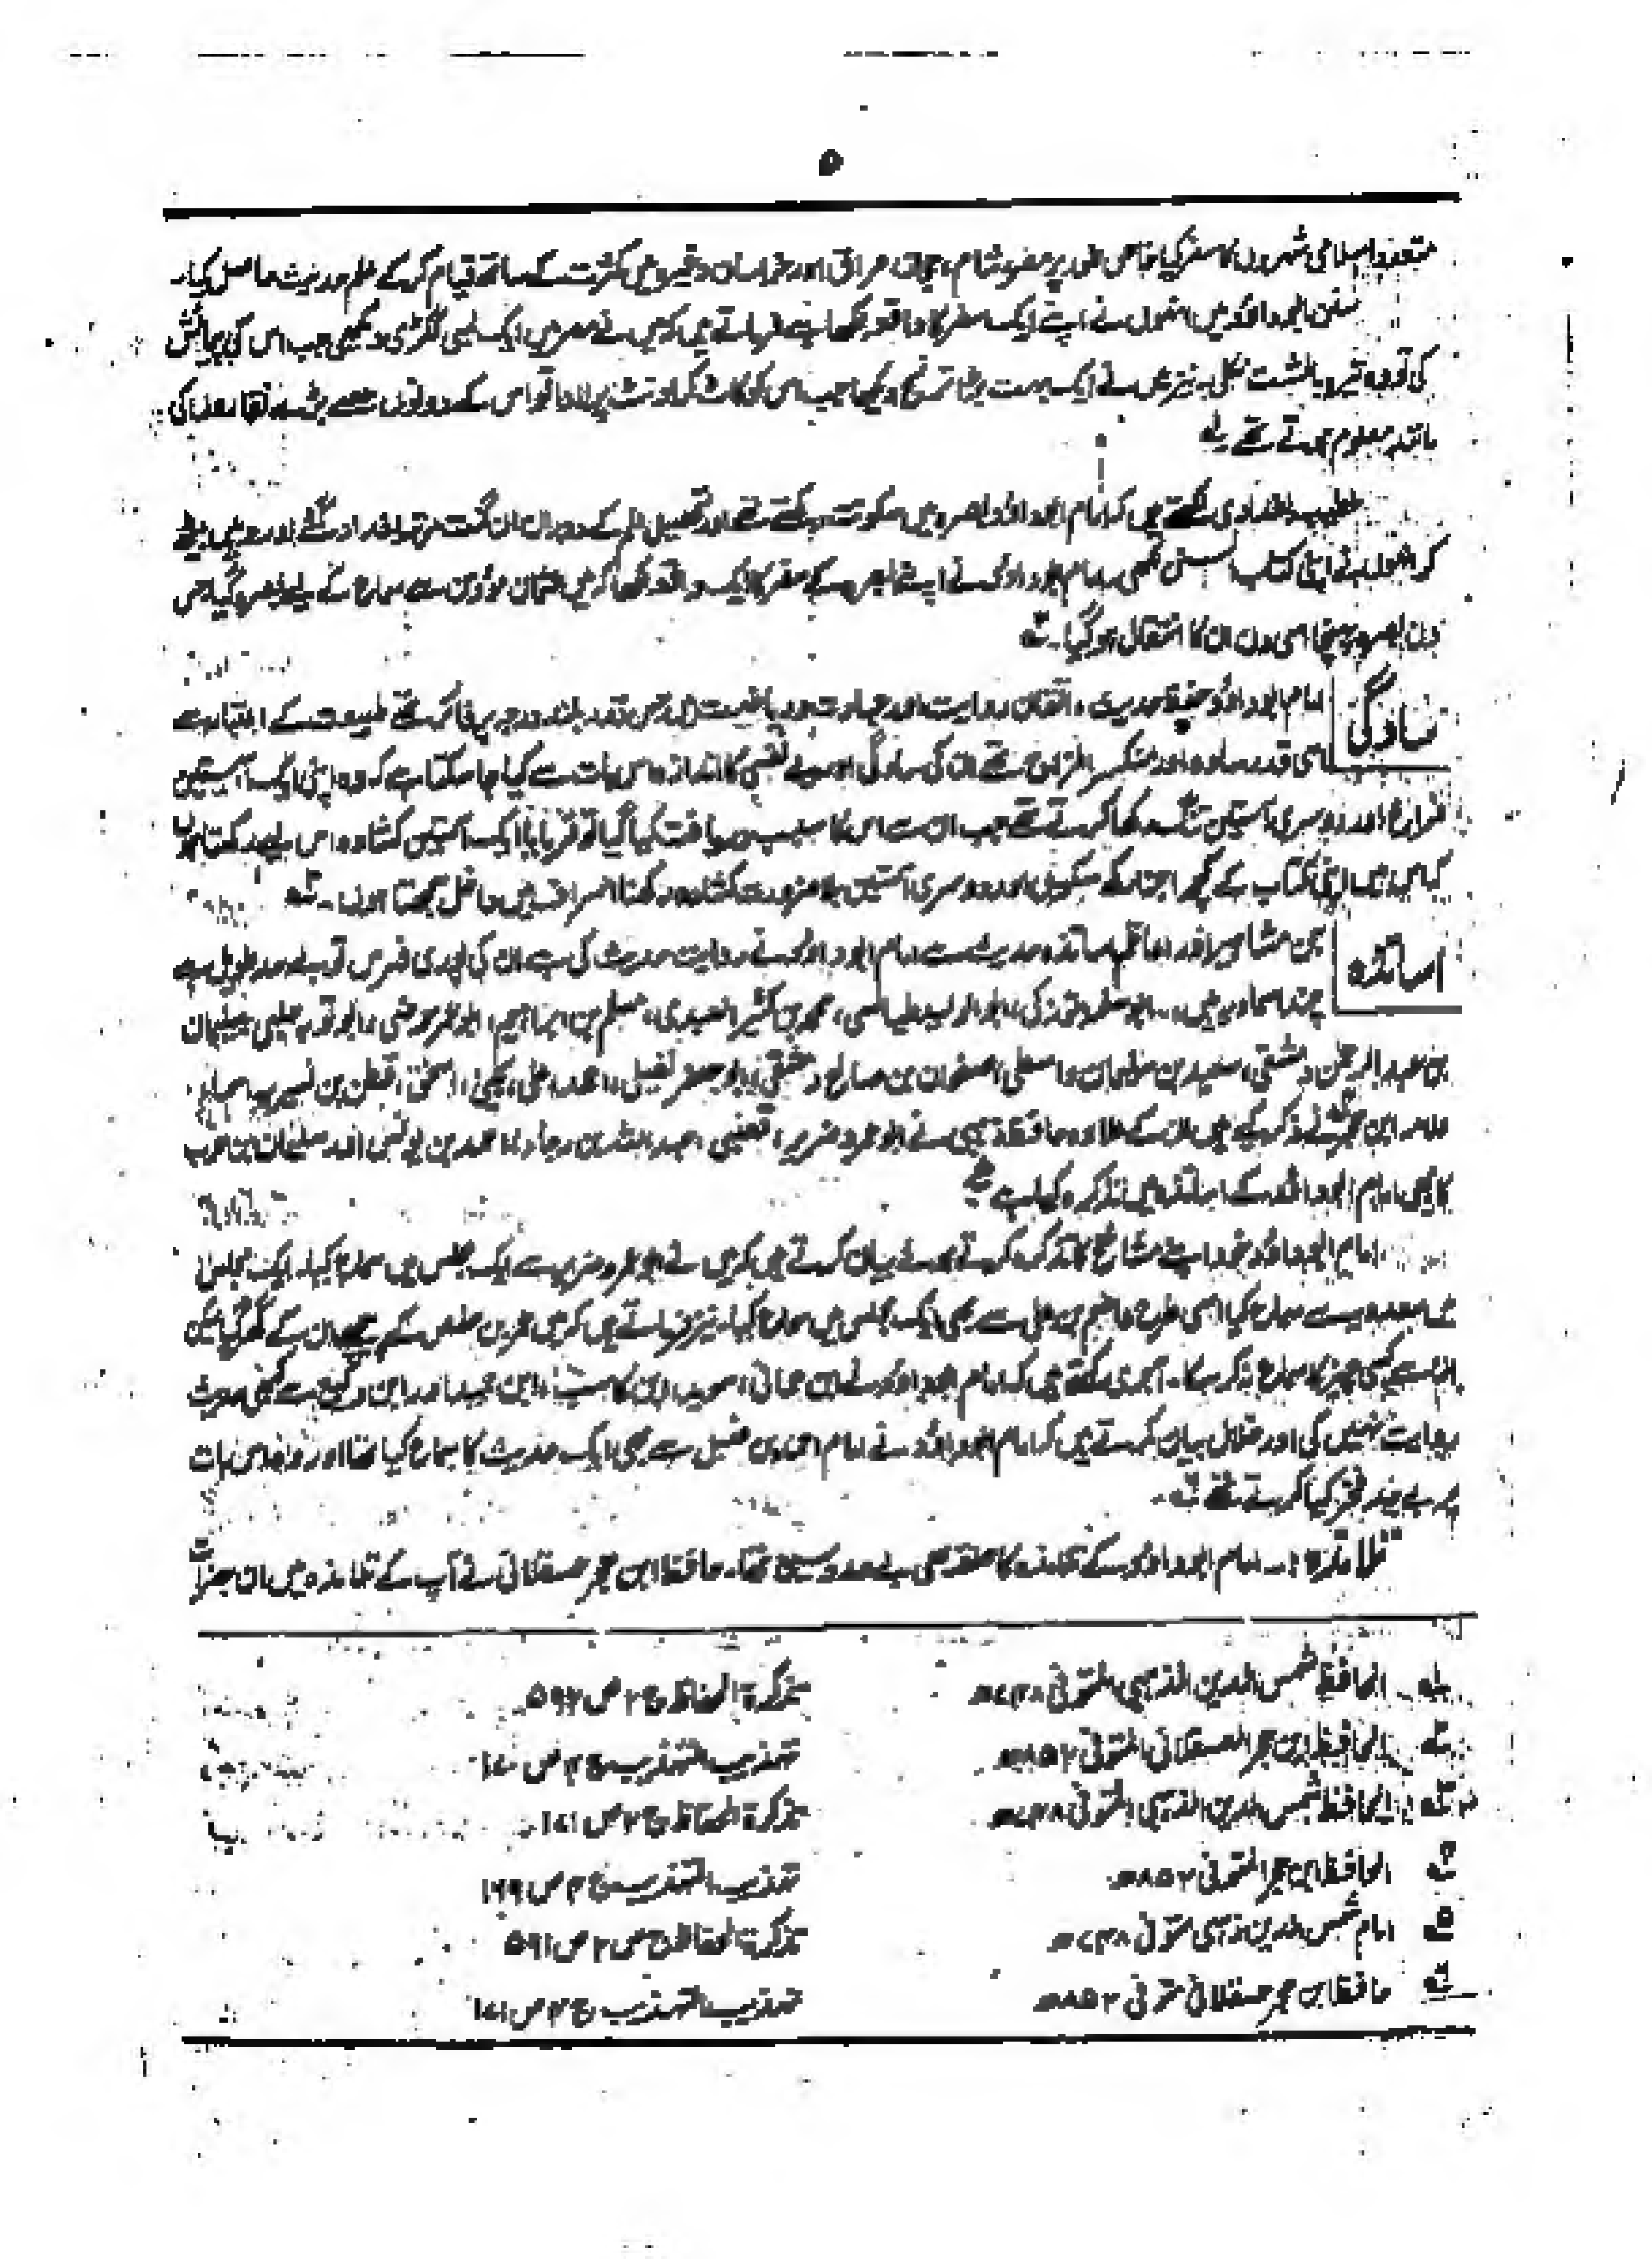 ۵
متعدد اسلامی شہروں کا سفر کیا خاص طور پر مصر، شام، حجاز، عراق اور خراسان وغیرہ میں کثرت کے ساتھ قیام کر کے علم حدیث حاصل کیا۔
سنن ابوداؤد میں انہوں نے اپنے ایک سفر کا واقعہ لکھا ہے فرماتے ہیں کہ میں نے مصر میں ایک لمبی ککڑی دیکھی جب اس کی پیمائش
کی تو وہ تیرہ بالشت نکلی نیز میں نے ایک بہت بڑا ترنج دیکھا جب اس کو کاٹ کر اونٹ پر لادا تو اس کے دونوں حصے بڑے نقاروں کی
مانند معلوم ہوتے تھے ۔ لہ
خطیب بغدادی لکھتے ہیں کہ امام ابوداؤد بصرہ میں سکونت رکھتے تھے اور تحصیل علم کے دوران ان گنت مرتبہ بغداد گئے اور وہیں بیٹھ
کر انہوں نے اپنی کتاب السنن لکھی۔ امام ابوداؤد نے اپنے بصرہ کے سفر کا ایک واقعہ لکھا کہ میں عثمان مؤذن سے سماع کے لیے بصرہ گیا جس
دن بصرہ پہنچا اسی دن ان کا انتقال ہو گیا۔ ۲ہ
سادگی
امام ابوداؤد حفظ حدیث، اتقان روایت اور جس قدر بلند درجہ پر فائز تھے طبیعت کے اعتبار سے
اسی قدر سادہ اور منکسر المزاج تھے ان کی سادگی اور بے نفسی کا اندازہ اس بات سے کیا جا سکتا ہے کہ وہ اپنی ایک آستین
فراخ اور دوسری آستین تنگ رکھا کرتے تھے جب ان سے اس کا سبب دریافت کیا گیا تو فرمایا ایک آستین کشادہ اس لیے رکھتا ہوں
کہ اس میں اپنی کتاب کے کچھ اجزا رکھ سکوں اور دوسری آستین بلا ضرورت کشادہ رکھنا اسراف میں داخل سمجھتا ہوں۔ ۳ہ
اساتذہ
جن مشاہیر اور اعاظم اساتذہ حدیث سے امام ابوداؤد نے روایت حدیث کی ہے ان کی پوری فہرس تو بے حد طویل ہے
چند اسماء یہ ہیں ابو الولید طیالسی، محمد بن کثیر العبدی، مسلم بن ابراہیم، ابو عمر حوضی، ابو توبہ حلبی، سلیمان
بن عبد الرحمٰن دمشقی، سعید بن سلیمان واسطی، صفوان بن صالح دمشقی، ابو جعفر نفیلی، احمد، علی، یحییٰ، اسحٰق، قطن بن نسیر
علامہ ابن حجر نے ذکر کیے ہیں ان کے علاوہ حافظ ذہبی نے ابو عمرو ضریر، قعنبی، عبداللہ بن رجاء، احمد بن یونس اور سلیمان بن حرب
کا بھی امام ابوداؤد کے اساتذہ میں تذکرہ کیا ہے
امام ابوداؤد خود اپنے مشائخ کا تذکرہ کرتے ہوئے بیان کرتے ہیں کہ میں نے ابو عمرو ضریر سے ایک مجلس میں سماع کیا۔ ایک مجلس
میں سعدویہ سے سماع کیا اسی طرح عاصم بن علی سے بھی ایک مجلس میں سماع کیا۔ نیز فرماتے ہیں کہ میں عمر بن حفص کے پیچھے ان کے گھر گیا لیکن
ان سے کسی چیز کا سماع نہ کر سکا۔ آجری لکھتے ہیں کہ امام ابوداؤد نے ابن حمانی، سوید، ابن کاسب، ابن حمید اور ابن وکیع سے کبھی حدیث
روایت نہیں کی اور خلال بیان کرتے ہیں کہ امام ابوداؤد نے امام احمد بن حنبل سے بھی ایک حدیث کا سماع کیا تھا اور وہ اس بات
پر بے حد فخر کیا کرتے تھے ۔
تلامذہ:۔ امام ابوداؤد کے تلامذہ کا حلقہ بھی بے حد وسیع تھا۔ حافظ ابن حجر عسقلانی نے آپ کے تلامذہ میں ان حضرات
۱ہ الحافظ شمس الدین الذہبی المتوفی ۷۴۸ھ تذکرۃ الحفاظ ج ۲ ص ۵۹۲
۲ہ الحافظ ابن حجر العسقلانی المتوفی ۸۵۲ھ تہذیب التہذیب ج ۴ ص ۱۷۰
۳ہ الحافظ شمس الدین الذہبی المتوفی ۷۴۸ھ تذکرۃ الحفاظ ج ۲ ص ۱۷۱
۴ہ الحافظ ابن حجر المتوفی ۸۵۲ھ تہذیب التہذیب ج ۴ ص ۱۶۹
۵ہ امام شمس الدین ذہبی متوفی ۷۴۸ھ تذکرۃ الحفاظ ج ص ۲ ص ۵۹۱
۶ہ حافظ ابن حجر عسقلانی متوفی ۸۵۲ھ تہذیب التہذیب ج ۴ ص ۱۷۱